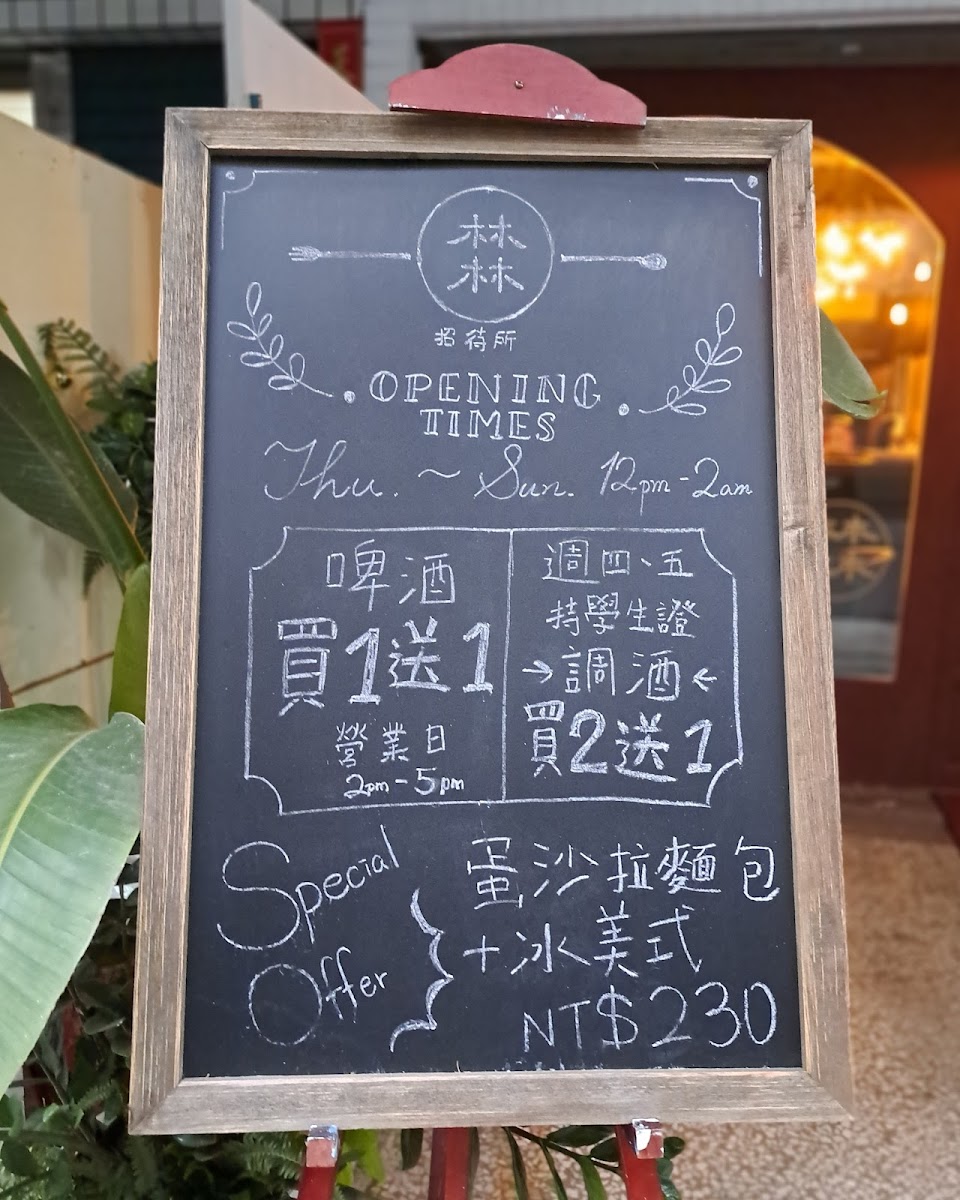 𣛧
招待所
OPENING
TIMES
Thu. ~ Sun. 12pm-2am
啤酒
買1送1
營業日
2pm-5pm
週四、五
持學生證
→調酒←
買2送1
Special
Offer
蛋沙拉麵包
+冰美式
NT$230